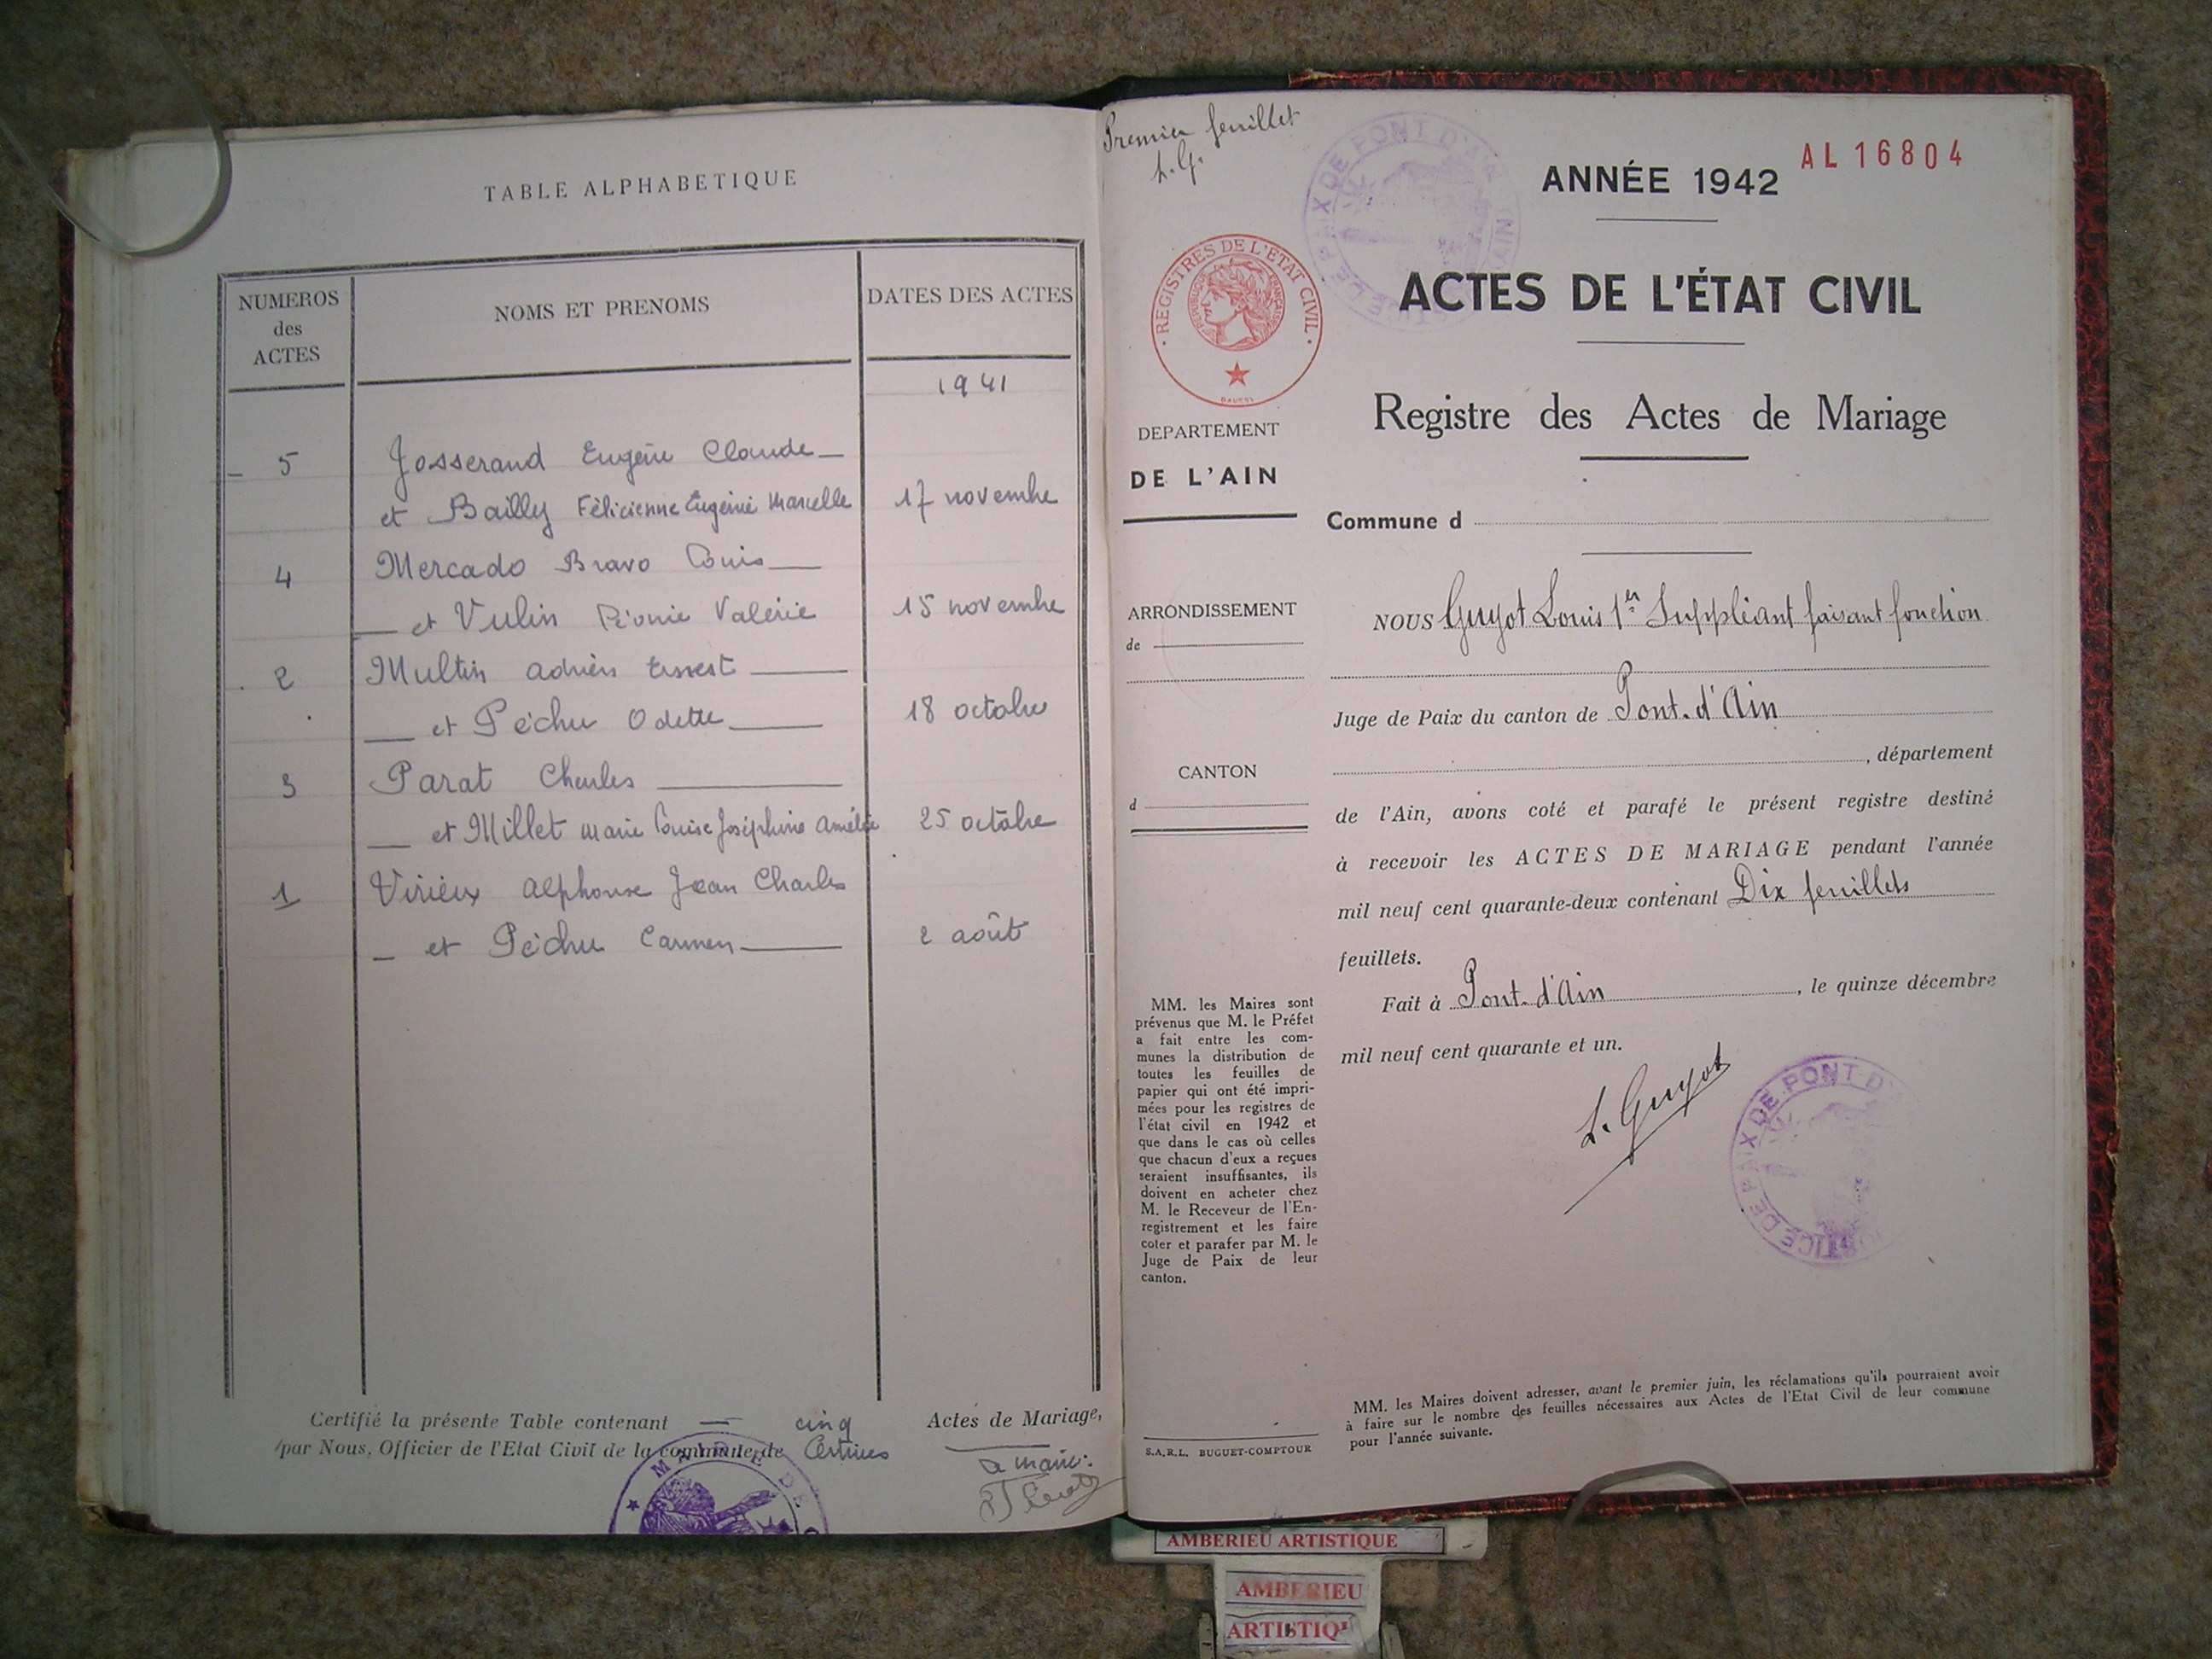 TABLE ALPHABETIQUE
NUMEROS
des
ACTES
NOMS ET PRENOMS
DATES DES ACTES
1941
5 Josserand Eugène Claude
et Bailly Félicienne Eugénie Marcelle 17 novembre
4 Mercado Bravo Louis
et Vulin Léonie Valérie 15 novembre
2 Multin Adrien Ernest
et Péchu Odette 18 octobre
3 Parat Charles
et Millet Marie Louise Joséphine Amélie 25 octobre
1 Virieux Alphonse Jean Charles
et Péchu Carmen 2 août
Certifié la présente Table contenant cinq Actes de Mariage,
par Nous, Officier de l'Etat Civil de la commune de
Le maire:
MAIRIE DE
Premier feuillet
L. G.
ANNÉE 1942
AL 16804
ACTES DE L'ÉTAT CIVIL
REGISTRES DE L'ÉTAT CIVIL
RÉPUBLIQUE FRANÇAISE
Registre des Actes de Mariage
DEPARTEMENT
DE L'AIN
Commune d
ARRONDISSEMENT
de
NOUS Guyot Louis 1er Suppléant faisant fonction
Juge de Paix du canton de Pont-d'Ain
, département
CANTON
d
de l'Ain, avons coté et parafé le présent registre destiné
à recevoir les ACTES DE MARIAGE pendant l'année
mil neuf cent quarante-deux contenant Dix feuillets
feuillets.
Fait à Pont-d'Ain, le quinze décembre
mil neuf cent quarante et un.
L. Guyot
JUSTICE DE PAIX DE PONT D'AIN
MM. les Maires sont
prévenus que M. le Préfet
a fait entre les com-
munes la distribution de
toutes les feuilles de
papier qui ont été impri-
mées pour les registres de
l'état civil en 1942 et
que dans le cas où celles
que chacun d'eux a reçues
seraient insuffisantes, ils
doivent en acheter chez
M. le Receveur de l'En-
registrement et les faire
coter et parafer par M. le
Juge de Paix de leur
canton.
S.A.R.L. BUGUET-COMPTOUR
MM. les Maires doivent adresser, avant le premier juin, les réclamations qu'ils pourraient avoir
à faire sur le nombre des feuilles nécessaires aux Actes de l'Etat Civil de leur commune
pour l'année suivante.
AMBERIEU ARTISTIQUE
AMBERIEU
ARTISTIQ